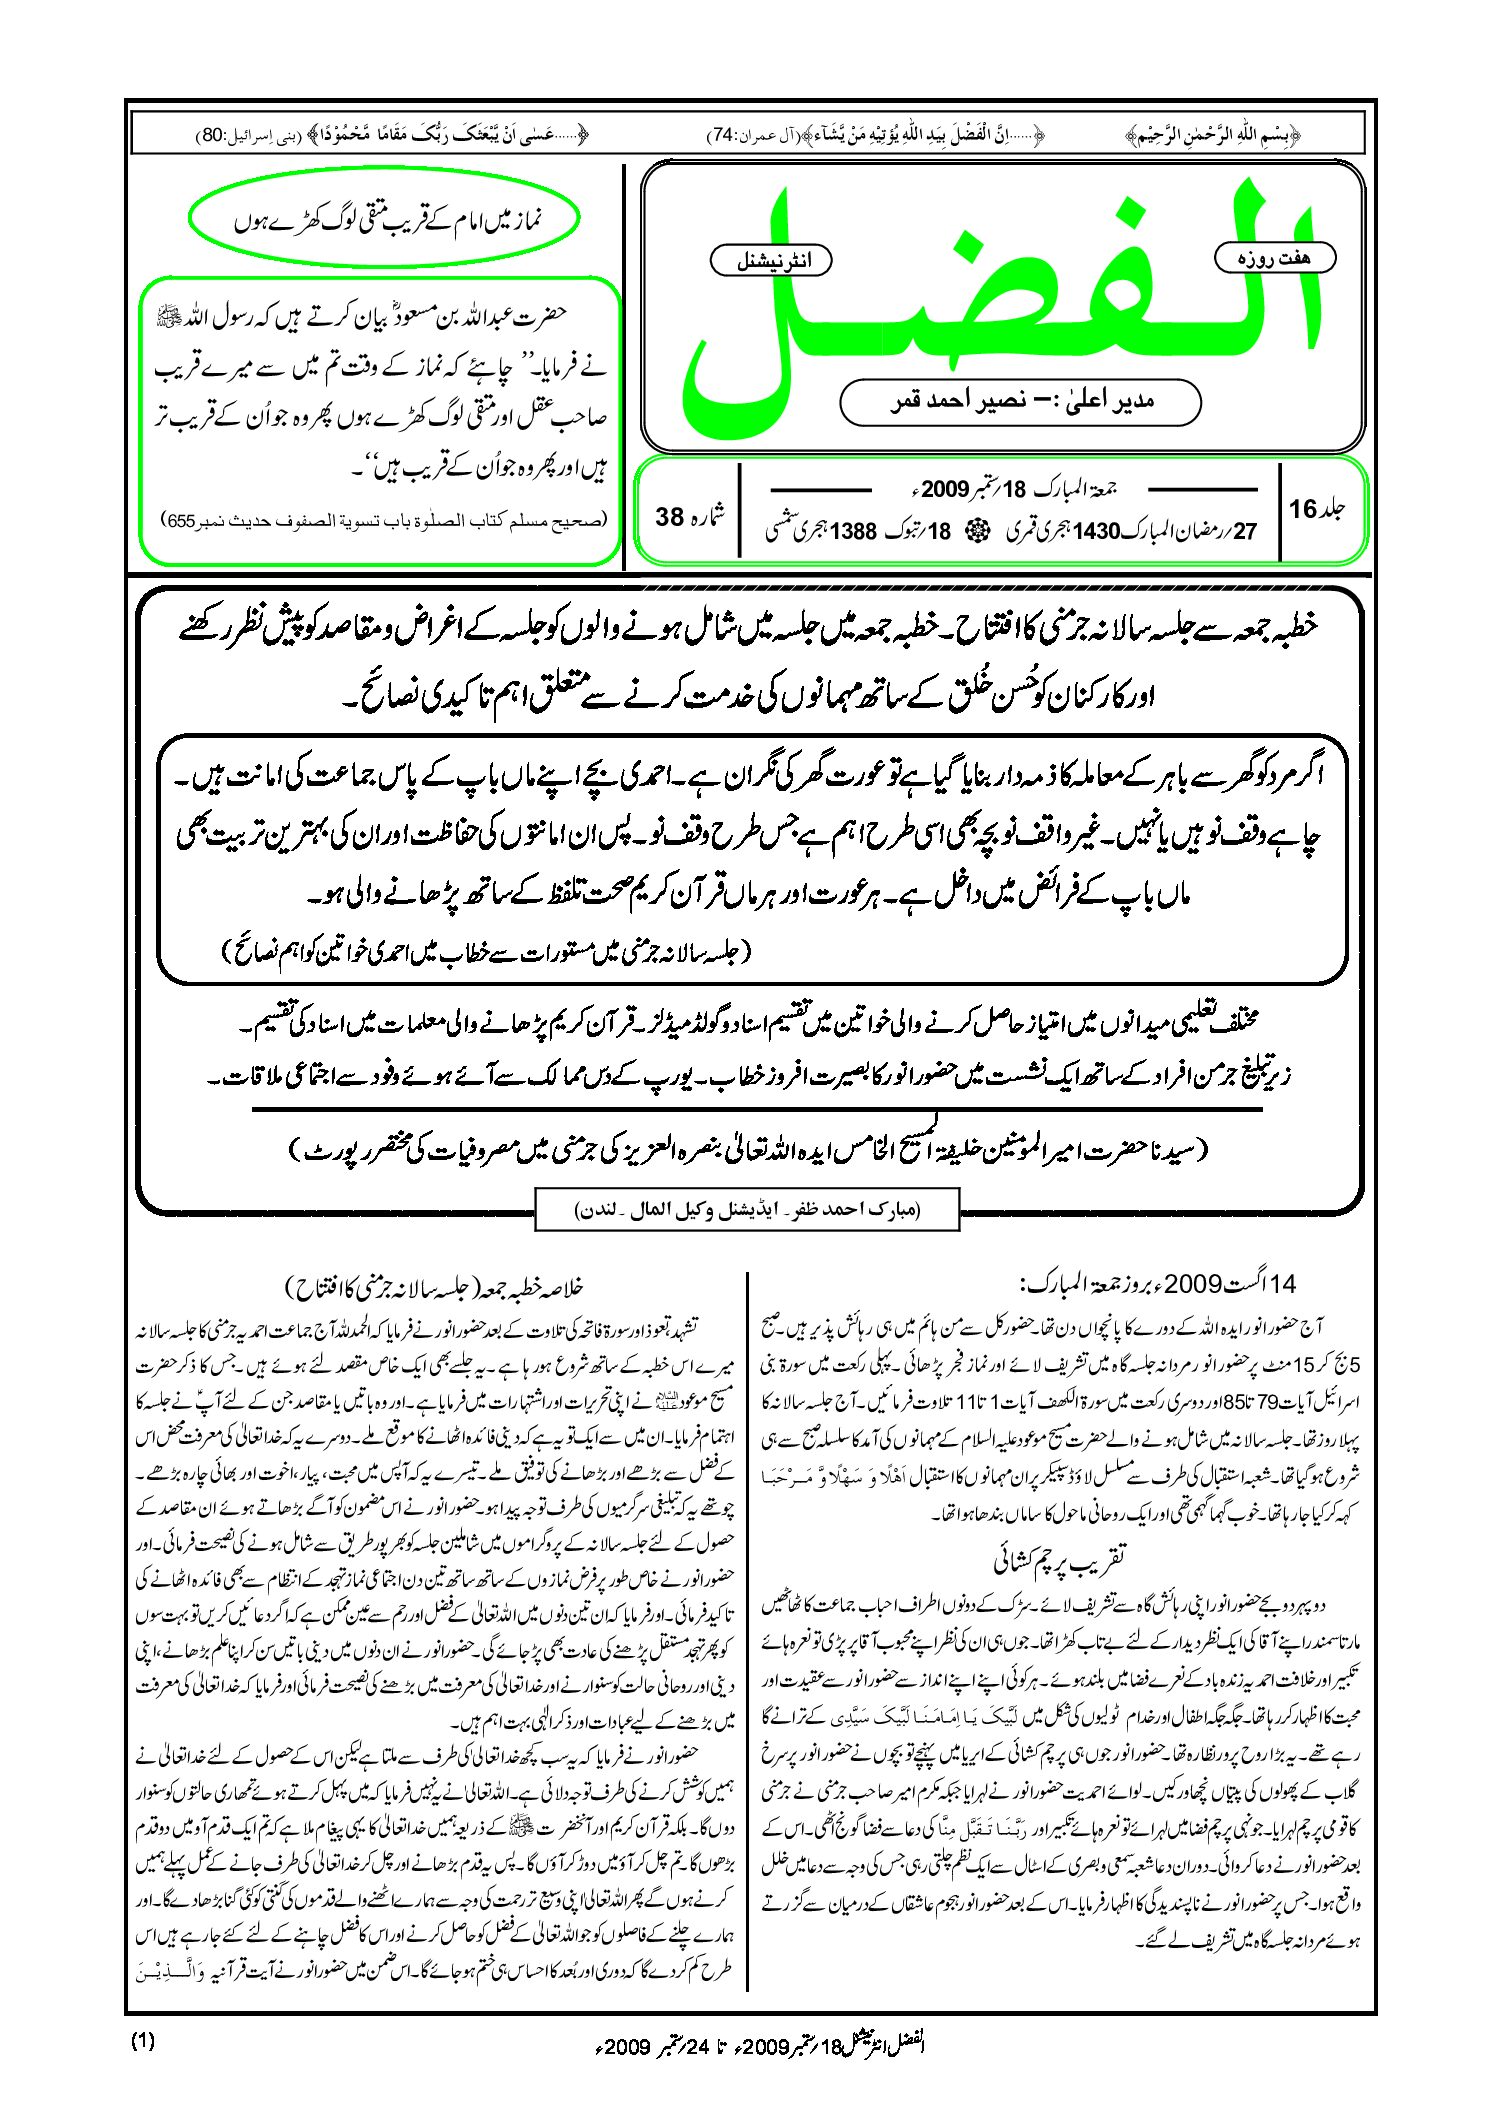 ﴿بِسْمِ اللّٰهِ الرَّحْمٰنِ الرَّحِيْمِ﴾
﴿......اِنَّ الْفَضْلَ بِيَدِ اللّٰهِ يُؤْتِيْهِ مَنْ يَّشَآء﴾(آل عمران:74)
﴿......عَسٰى اَنْ يَّبْعَثَكَ رَبُّكَ مَقَامًا مَّحْمُوْدًا﴾ (بنی اِسرائیل:80)
هفت روزه
الفضل
انٹرنیشنل
مدیر اعلیٰ :– نصیر احمد قمر
جلد 16
جمعۃ المبارک 18؍ستمبر 2009ء
27؍رمضان المبارک 1430 ہجری قمری ۞ 18؍تبوک 1388 ہجری شمسی
شمارہ 38
نماز میں امام کے قریب متقی لوگ کھڑے ہوں
حضرت عبداللہ بن مسعودؓ بیان کرتے ہیں کہ رسول اللہ ﷺ
نے فرمایا۔’’ چاہئے کہ نماز کے وقت تم میں سے میرے قریب
صاحب عقل اور متقی لوگ کھڑے ہوں پھر وہ جو اُن کے قریب تر
ہیں اور پھر وہ جو اُن کے قریب ہیں‘‘۔
(صحیح مسلم کتاب الصلوٰة باب تسویة الصفوف حدیث نمبر655)
خطبہ جمعہ سے جلسہ سالانہ جرمنی کا افتتاح۔ خطبہ جمعہ میں جلسہ میں شامل ہونے والوں کو جلسہ کے اغراض و مقاصد کو پیش نظر رکھنے
اور کارکنان کو حُسن خُلق کے ساتھ مہمانوں کی خدمت کرنے سے متعلق اہم تاکیدی نصائح۔
اگر مرد کو گھر سے باہر کے معاملہ کا ذمہ دار بنایا گیا ہے تو عورت گھر کی نگران ہے۔ احمدی بچے اپنے ماں باپ کے پاس جماعت کی امانت ہیں۔
چاہے وقف نو ہیں یا نہیں۔ غیر واقف نو بچہ بھی اسی طرح اہم ہے جس طرح وقف نو۔ پس ان امانتوں کی حفاظت اور ان کی بہترین تربیت بھی
ماں باپ کے فرائض میں داخل ہے۔ ہر عورت اور ہر ماں قرآن کریم صحت تلفظ کے ساتھ پڑھانے والی ہو۔
(جلسہ سالانہ جرمنی میں مستورات سے خطاب میں احمدی خواتین کو اہم نصائح)
مختلف تعلیمی میدانوں میں امتیاز حاصل کرنے والی خواتین میں تقسیم اسناد و گولڈ میڈلز۔ قرآن کریم پڑھانے والی معلمات میں اسناد کی تقسیم۔
زیر تبلیغ جرمن افراد کے ساتھ ایک نشست میں حضور انور کا بصیرت افروز خطاب۔ یورپ کے دس ممالک سے آئے ہوئے وفود سے اجتماعی ملاقات۔
(سیدنا حضرت امیر المومنین خلیفۃ المسیح الخامس ایدہ اللہ تعالیٰ بنصرہ العزیز کی جرمنی میں مصروفیات کی مختصر رپورٹ)
(مبارک احمد ظفر۔ ایڈیشنل وکیل المال ۔لندن)
14 اگست 2009ء بروز جمعۃ المبارک:
آج حضور انور ایدہ اللہ کے دورے کا پانچواں دن تھا۔ حضور کل سے من ہائم میں ہی رہائش پذیر ہیں۔ صبح
5 بج کر 15 منٹ پر حضور انور مردانہ جلسہ گاہ میں تشریف لائے اور نماز فجر پڑھائی۔ پہلی رکعت میں سورۃ بنی
اسرائیل آیات 79 تا 85 اور دوسری رکعت میں سورۃ الکھف آیات 1 تا 11 تلاوت فرمائیں۔ آج جلسہ سالانہ کا
پہلا روز تھا۔ جلسہ سالانہ میں شامل ہونے والے حضرت مسیح موعود علیہ السلام کے مہمانوں کی آمد کا سلسلہ صبح سے ہی
شروع ہو گیا تھا۔ شعبہ استقبال کی طرف سے مسلسل لاؤڈ سپیکر پر ان مہمانوں کا استقبال اَهْلًا وَ سَهْلًا وَّ مَرْحَبَا
کہہ کر کیا جا رہا تھا۔ خوب گہما گہمی تھی اور ایک روحانی ماحول کا ساماں بندھا ہوا تھا۔
تقریب پرچم کشائی
دو پہر دو بجے حضور انور اپنی رہائش گاہ سے تشریف لائے۔ سڑک کے دونوں اطراف احباب جماعت کا ٹھاٹھیں
مارتا سمندر اپنے آقا کی ایک نظر دیدار کے لئے بے تاب کھڑا تھا۔ جوں ہی ان کی نظر اپنے محبوب آقا پر پڑی تو نعرہ ہائے
تکبیر اور خلافت احمدیہ زندہ باد کے نعرے فضا میں بلند ہوئے۔ ہر کوئی اپنے اپنے انداز سے حضور انور سے عقیدت اور
محبت کا اظہار کر رہا تھا۔ جگہ جگہ اطفال اور خدام ٹولیوں کی شکل میں لَبَّيكَ يَا اِمَامَنَا لَبَّيكَ سَيَّدِى کے ترانے گا
رہے تھے۔ یہ بڑا روح پرور نظارہ تھا۔ حضور انور جوں ہی پرچم کشائی کے ایریا میں پہنچے تو بچوں نے حضور انور پر سرخ
گلاب کے پھولوں کی پتیاں نچھاور کیں۔ لوائے احمدیت حضور انور نے لہرایا جبکہ مکرم امیر صاحب جرمنی نے جرمنی
کا قومی پرچم لہرایا۔ جونہی پرچم فضا میں لہرائے تو نعرہ ہائے تکبیر اور رَبَّنَا تَقَبَّل مِنَّا کی دعا سے فضا گونج اٹھی۔ اس کے
بعد حضور انور نے دعا کروائی۔ دوران دعا شعبہ سمعی و بصری کے اسٹال سے ایک نظم چلتی رہی جس کی وجہ سے دعا میں خلل
واقع ہوا۔ جس پر حضور انور نے ناپسندیدگی کا اظہار فرمایا۔ اس کے بعد حضور انور ہجوم عاشقاں کے درمیان سے گزرتے
ہوئے مردانہ جلسہ گاہ میں تشریف لے گئے۔
خلاصہ خطبہ جمعہ (جلسہ سالانہ جرمنی کا افتتاح)
تشہد، تعوذ اور سورۃ فاتحہ کی تلاوت کے بعد حضور انور نے فرمایا کہ الحمدللہ آج جماعت احمدیہ جرمنی کا جلسہ سالانہ
میرے اس خطبہ کے ساتھ شروع ہو رہا ہے۔ یہ جلسے بھی ایک خاص مقصد لئے ہوئے ہیں۔ جس کا ذکر حضرت
مسیح موعود علیہ السلام نے اپنی تحریرات اور اشتہارات میں فرمایا ہے۔ اور وہ باتیں یا مقاصد جن کے لئے آپؑ نے جلسہ کا
اہتمام فرمایا۔ ان میں سے ایک تو یہ ہے کہ دینی فائدہ اٹھانے کا موقع ملے۔ دوسرے یہ کہ خدا تعالیٰ کی معرفت محض اس
کے فضل سے بڑھے اور بڑھانے کی توفیق ملے۔ تیسرے یہ کہ آپس میں محبت، پیار، اخوت اور بھائی چارہ بڑھے۔
چوتھے یہ کہ تبلیغی سرگرمیوں کی طرف توجہ پیدا ہو۔ حضور انور نے اس مضمون کو آگے بڑھاتے ہوئے ان مقاصد کے
حصول کے لئے جلسہ سالانہ کے پروگراموں میں شاملین جلسہ کو بھرپور طریق سے شامل ہونے کی نصیحت فرمائی۔ اور
حضور انور نے خاص طور پر فرض نمازوں کے ساتھ ساتھ تین دن اجتماعی نماز تہجد کے انتظام سے بھی فائدہ اٹھانے کی
تاکید فرمائی۔ اور فرمایا کہ ان تین دنوں میں اللہ تعالیٰ کے فضل اور رحم سے عین ممکن ہے کہ اگر دعائیں کریں تو بہت سوں
کو پھر تہجد مستقل پڑھنے کی عادت بھی پڑ جائے گی۔ حضور انور نے ان دنوں میں دینی باتیں سن کر اپنا علم بڑھانے، اپنی
دینی اور روحانی حالت کو سنوارنے اور خدا تعالیٰ کی معرفت میں بڑھنے کی نصیحت فرمائی اور فرمایا کہ خدا تعالیٰ کی معرفت
میں بڑھنے کے لیے عبادات اور ذکر الٰہی بہت اہم ہیں۔
حضور انور نے فرمایا کہ یہ سب کچھ خدا تعالیٰ کی طرف سے ملتا ہے لیکن اس کے حصول کے لئے خدا تعالیٰ نے
ہمیں کوشش کرنے کی طرف توجہ دلائی ہے۔ اللہ تعالیٰ نے یہ نہیں فرمایا کہ میں پہل کرتے ہوئے تمہاری حالتوں کو سنوار
دوں گا۔ بلکہ قرآن کریم اور آنحضرت ﷺ کے ذریعہ ہمیں خدا تعالیٰ کا یہی پیغام ملا ہے کہ تم ایک قدم آو میں دو قدم
بڑھوں گا۔ تم چل کر آؤ میں دوڑ کر آؤں گا۔ پس یہ قدم بڑھانے اور چل کر خدا تعالیٰ کی طرف جانے کے عمل پہلے ہمیں
کرنے ہوں گے پھر اللہ تعالیٰ اپنی وسیع تر رحمت کی وجہ سے ہمارے اٹھنے والے قدموں کی گنتی کو کئی گنا بڑھا دے گا۔ اور
ہمارے چلنے کے فاصلوں کو جو اللہ تعالیٰ کے فضل کو حاصل کرنے اور اس کا فضل چاہنے کے لئے کئے جا رہے ہیں اس
طرح کم کر دے گا کہ دوری اور بُعد کا احساس ہی ختم ہو جائے گا۔ اس ضمن میں حضور انور نے آیت قرآنیہ وَالَّذِيْنَ
الفضل انٹرنیشنل 18؍ستمبر 2009ء تا 24؍ستمبر 2009ء
(1)